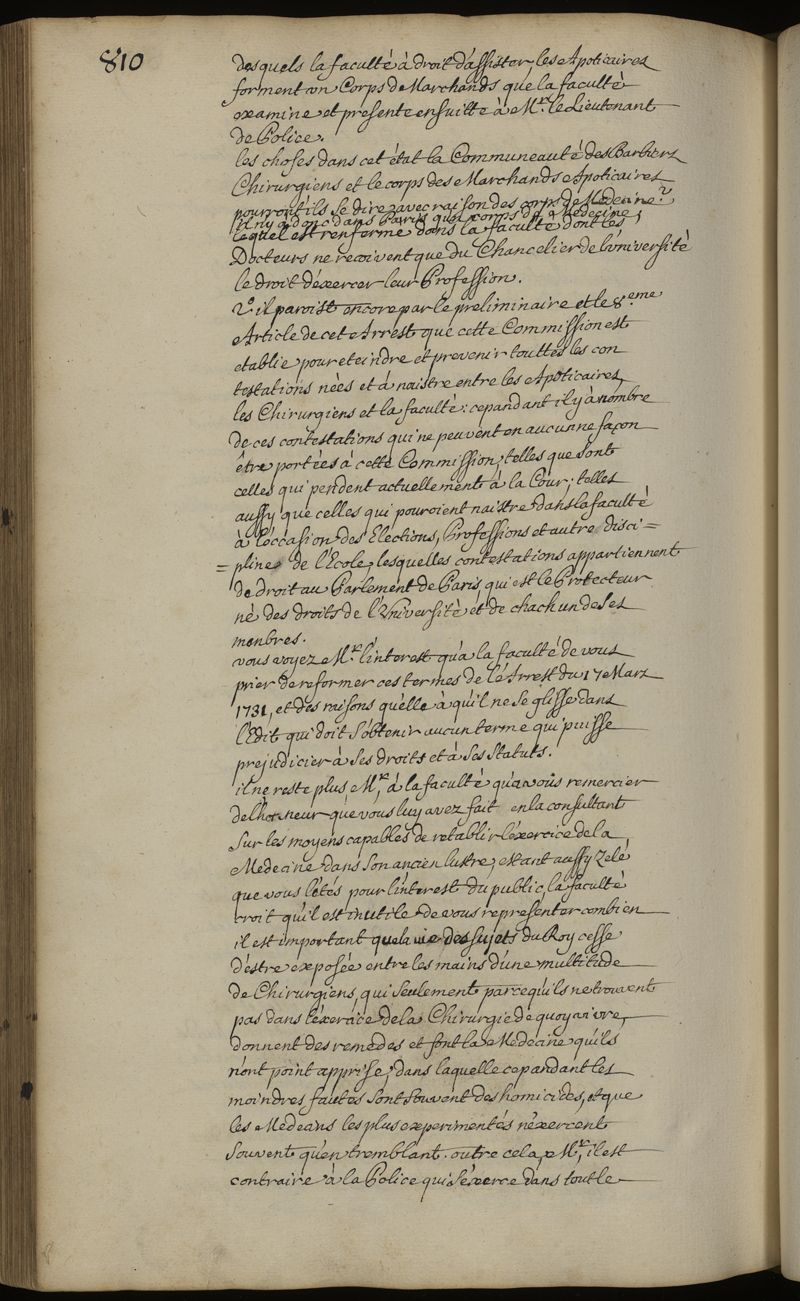 810
desquels la faculté à droit d'assister, les Apoticaires
forment un Corps de Marchands que la faculté
examine et presente ensuitte à Mr. le Lieutenant
de Police.
les choses dans cet état la Communeauté des Barbiers
Chirurgiens et le corps des Marchands Apoticaires
pourront ils se dire avec raison des corps de Medecine?
il n'y a donc dans Paris qu'un corps de Medecine,
lequel est renfermé dans la faculté dont les
Docteurs ne recoivent que du Chancelier de luniversité
le droit d'éxercer leur Profession.
2.° il paroist encore par le preliminaire et le 8.eme
Article de cet Arrest que cette Commission est
etablie pour eteindre et prevenir touttes les con
testations nées et à naistre entre les Apoticaires,
les Chirurgiens et la faculté: cependant il y à nombre
de ces contestations qui ne peuvent en aucunne façon
être portées à cette Commission, telles que sont
celles qui pendent actuellement à la Cour; telles
aussy que celles qui pouroient naistre dans la faculté
à l'occasion des Elections, Professions et autre disci=
=pline de l'Ecole, lesquelles contestations appartiennent
de droit au Parlement de Paris, qui est le Protecteur
né des droits de l'Université et de chachun de ses
menbres.
vous voyez Mr. l'interest qu'a la faculté de vous
prier de reformer ces termes de l'Arrest du 17 Mars
1731, et des raisons qu'elle à qu'il ne se glisse dans
l'Edit qui doit s'obtenir aucun terme qui puisse
prejudicier à ses droits et à ses statuts.
il ne reste plus Mr, à la faculté qu'a vous remercier
de lhonneur que vous luy avez fait en la consultant
sur les moyens capables de retablir l'éxercice de la
Medecine dans son ancien lustre, estant aussy zelé
que vous l'étés pour l'interest du public, la faculté
croit qu'il est inutile de vous representer combien
il est important que la vie des sujets du Roy cesse
d'éstre exposée entre les mains d'une multitude
de Chirurgiens, qui seulement parcequ'ils ne trouvent
pas dans l'éxercice de la Chirurgie de quoy vivre,
donnent des remedes et font la Medecine qu'ils
n'ont point apprise, dans laquelle cependant les
moindres fautes sont souvent des homicides, et que
les Medecins les plus experimentés n'éxercent
souvent qu'en tremblant. outre cela Mr, il est
contraire à la Police qui s'éxerce dans tout le